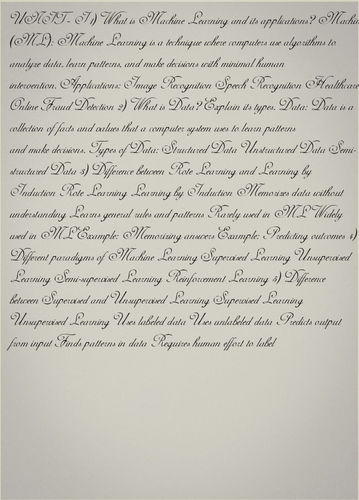 UNIT- I 1) What is Machine Learning and its applications? Machine
(ML): Machine Learning is a technique where computers use algorithms to
analyze data, learn patterns, and make decisions with minimal human
intervention. Applications: Image Recognition Speech Recognition Healthcare
Online Fraud Detection 2) What is Data? Explain its types. Data: Data is a
collection of facts and values that a computer system uses to learn patterns
and make decisions. Types of Data: Structured Data Unstructured Data Semi-
structured Data 3) Difference between Rote Learning and Learning by
Induction Rote Learning Learning by Induction Memorizes data without
understanding Learns general rules and patterns Rarely used in ML Widely
used in ML Example: Memorizing answers Example: Predicting outcomes 4)
Different paradigms of Machine Learning Supervised Learning Unsupervised
Learning Semi-supervised Learning Reinforcement Learning 5) Difference
between Supervised and Unsupervised Learning Supervised Learning
Unsupervised Learning Uses labeled data Uses unlabeled data Predicts output
from input Finds patterns in data Requires human effort to label